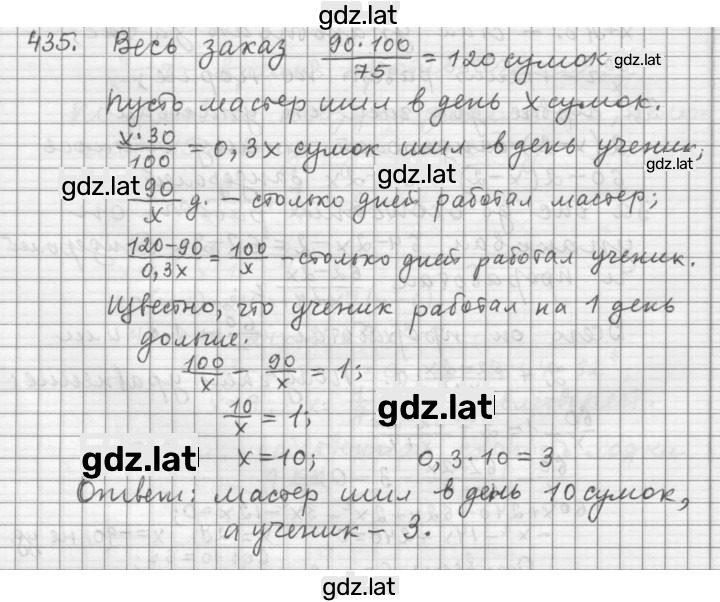 gdz.lat
435. Весь заказ 90·100/75 = 120 сумок gdz.lat
Пусть мастер шил в день x сумок.
x·30/100 = 0,3x сумок шил в день ученик;
gdz.lat gdz.lat gdz.lat
90/x д. – столько дней работал мастер;
120-90/0,3x = 100/x – столько дней работал ученик.
Известно, что ученик работал на 1 день
дольше.
100/x - 90/x = 1;
10/x = 1;
gdz.lat
gdz.lat x = 10; 0,3·10 = 3
Ответ: мастер шил в день 10 сумок,
а ученик – 3.
gdz.lat